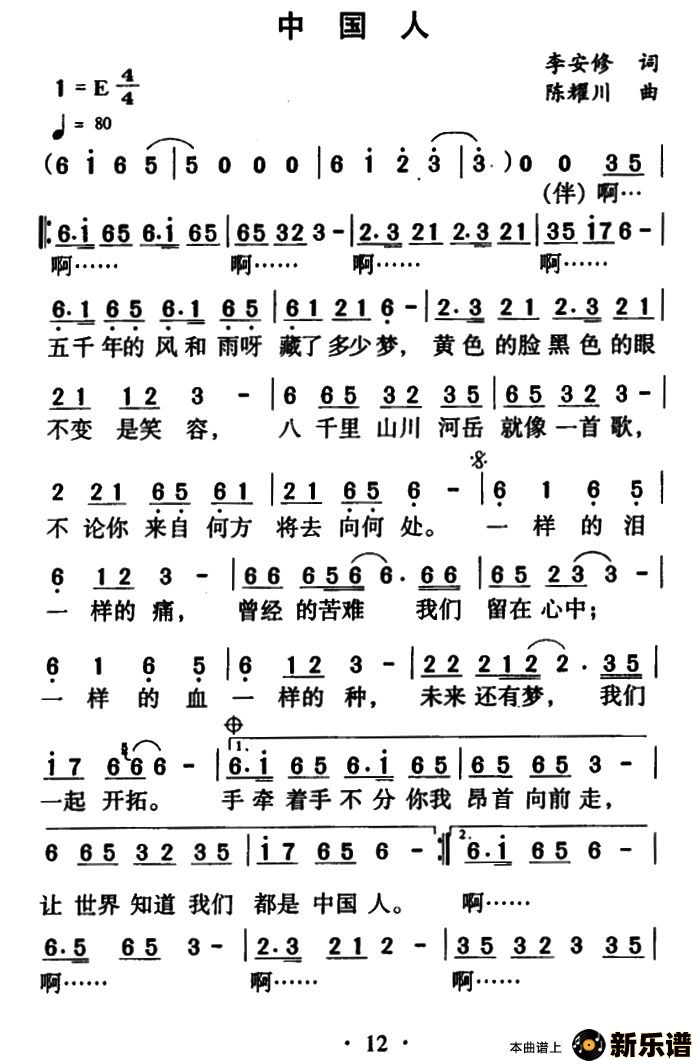 中国人
李安修 词
1=E 4/4
陈耀川 曲
♩= 80
(6 i 6 5 | 5 0 0 0 | 6 i 2 3 | 3 ·) 0 0 35 |
(伴)啊…
‖: 6·i 65 6·i 65 | 65 32 3 - | 2·3 21 2·3 21 | 35 i7 6 - |
啊…… 啊…… 啊…… 啊……
6·1 65 6·1 65 | 61 21 6 - | 2·3 21 2·3 21 |
五千年的风和雨呀 藏了多少梦，黄色的脸黑色的眼
21 12 3 - | 6 65 32 35 | 65 32 3 - |
不变 是笑 容， 八 千里 山川 河岳 就像 一首 歌，
2 21 65 61 | 21 65 6 - | 6 1 6 5 |
不 论你 来自 何方 将去 向何 处。 一 样 的 泪
6 12 3 - | 66 6566 6·66 | 65 23 3 - |
一 样的 痛， 曾经 的苦难 我们 留在 心中；
6 1 6 5 | 6 12 3 - | 22 2122 2·35 |
一 样 的 血 一 样的 种， 未来 还有梦， 我们
i7 666 - | 1. 6·i 65 6·i 65 | 65 65 3 - |
一起 开拓。 手牵着手不分你我 昂首向前走，
6 65 32 35 | i7 65 6 - :‖ 2. 6·i 65 6 - |
让 世界 知道 我们 都是 中国 人。 啊……
6·5 65 3 - | 2·3 21 2 - | 35 32 3 35 |
啊…… 啊…… 啊……
· 12 ·
本曲谱上 新乐谱